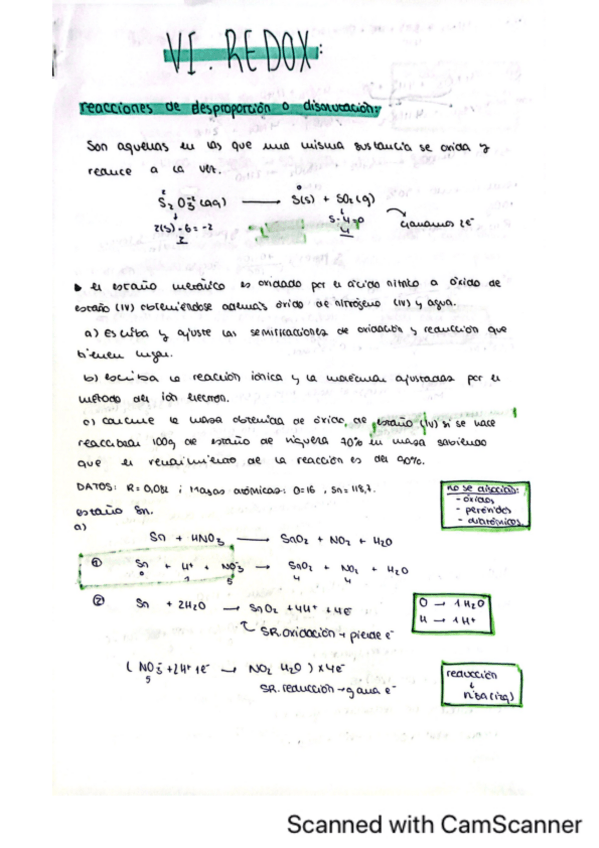 VI. REDOX:
reacciones de desproporción o dismutación:
Son aquellas en las que una misma sustancia se oxida y
reduce a la vez.
S₂O₃⁻²(aq) → S(s) + SO₂(g)
2(S)-6=-2
S-4=0
4
ganamos 2e⁻
el estaño metálico es oxidado por el ácido nítrico a óxido de
estaño (IV) obteniéndose además óxido de nitrógeno (IV) y agua.
a) Escriba y ajuste las semirreacciones de oxidación y reducción que
tienen lugar.
b) escriba la reacción iónica y la molecular ajustadas por el
método del ion electrón.
c) calcule la masa obtenida de óxido de estaño (IV) si se hace
reaccionar 100g de estaño de riqueza 70% en masa sabiendo
que el rendimiento de la reacción es del 90%.
DATOS: R=0,082 ; Masas atómicas: O=16, Sn=118,7.
no se disocian:
- óxidos
- peróxidos
- diatómicos
estaño Sn.
a)
Sn + HNO₃ → SnO₂ + NO₂ + H₂O
① Sn + H⁺ + NO₃⁻ → SnO₂ + NO₂ + H₂O
0 1 5 4 4
② Sn + 2H₂O → SnO₂ + 4H⁺ + 4e⁻
O → 1H₂O
H → 1H⁺
SR. oxidación → pierde e⁻
(NO₃⁻ + 2H⁺ + 1e⁻ → NO₂ H₂O) x 4e⁻
5
SR. reducción → gana e⁻
reducción
↓
(izq)
Scanned with CamScanner